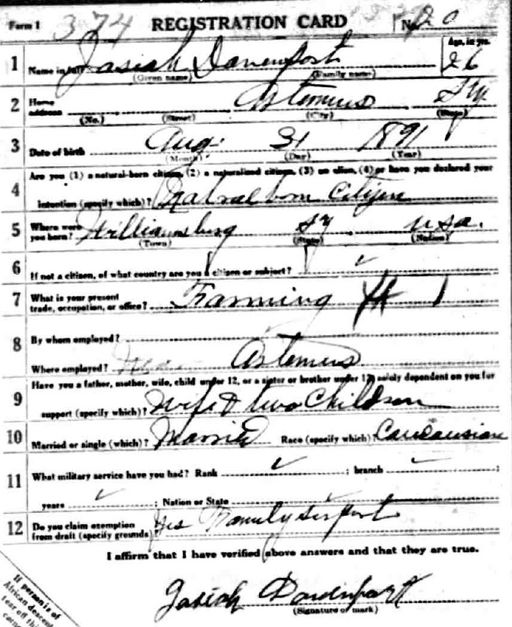 Form 1 374 REGISTRATION CARD No. 20
1 Name in full Josiah Davenport Age, in yrs. 26
(Given name) (Family name)
2 Home address Artemus Ky.
(No.) (Street) (City) (State)
3 Date of birth Aug. 31 1891
(Month) (Day) (Year)
Are you (1) a natural-born citizen, (2) a naturalized citizen, (3) an alien, (4) or have you declared your
4 intention (specify which)? Natural born Citizen
5 Where were you born? Williamsburg Ky USA.
(Town) (State) (Nation)
6 If not a citizen, of what country are you a citizen or subject? ✓
7 What is your present trade, occupation, or office? Farming
8 By whom employed?
Where employed? Artemus
9 Have you a father, mother, wife, child under 12, or a sister or brother under 12, solely dependent on you for
support (specify which)? Wife & two Children
10 Married or single (which)? Married Race (specify which)? Caucausian
11 What military service have you had? Rank ✓ ; branch ✓ ;
years ✓ ; Nation or State
12 Do you claim exemption from draft (specify grounds)? Yes Family support
I affirm that I have verified above answers and that they are true.
Josiah Davenport
(Signature or mark)
If person is of
African descent
tear off this